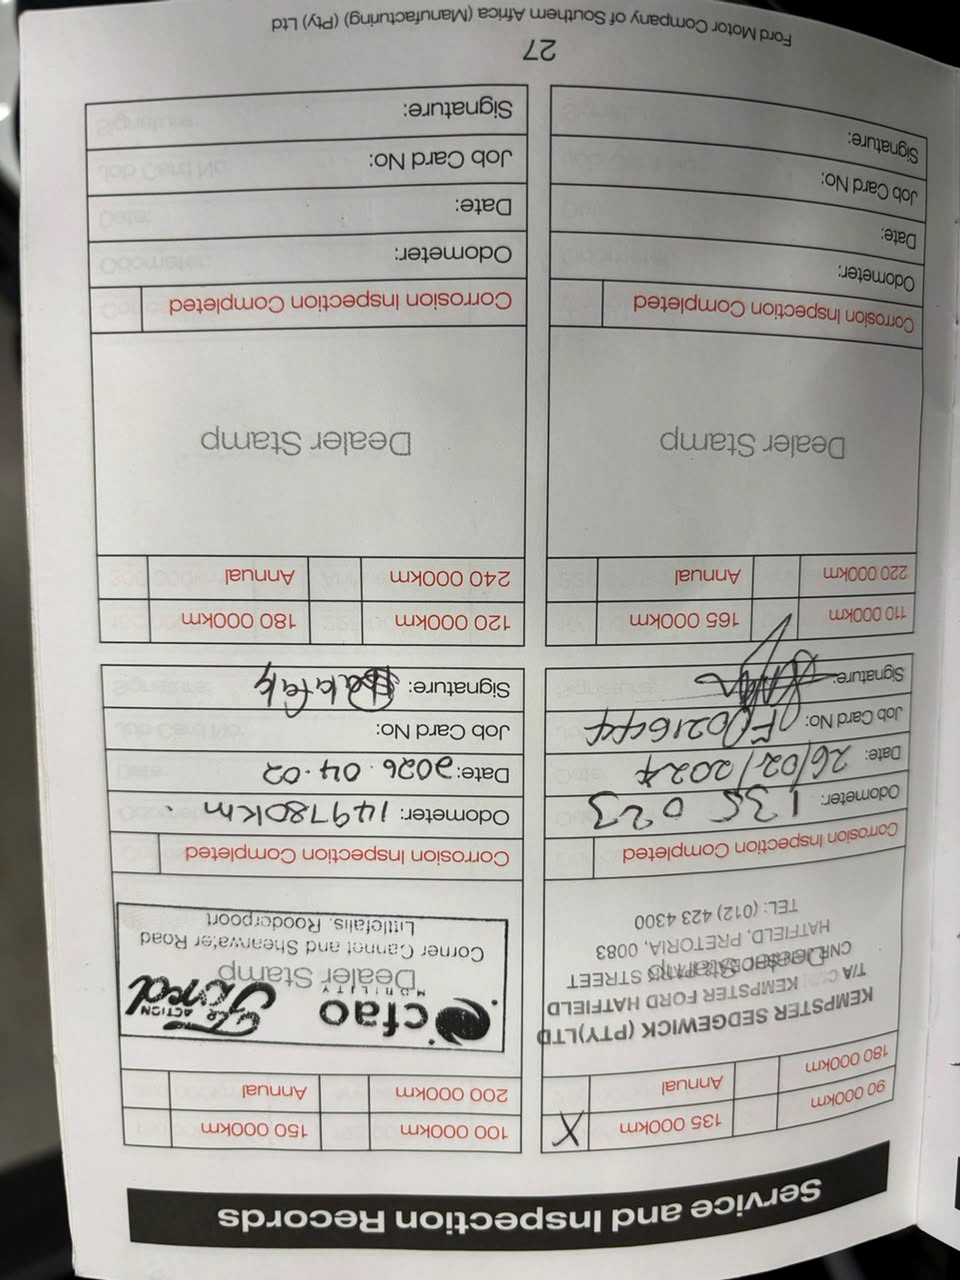 Service and Inspection Records
90 000km 135 000km X
180 000km Annual
KEMPSTER SEDGEWICK (PTY)LTD
T/A KEMPSTER FORD HATFIELD
STREET
Dealer Stamp
HATFIELD, PRETORIA, 0083
TEL: (012) 423 4300
Corrosion Inspection Completed
Odometer: 135 023
Date: 26/02/2024
Job Card No:
Signature:
100 000km 150 000km
200 000km Annual
cfao
MOBILITY
ACTION
Ford
Dealer Stamp
Corner Gannet and Shearwater Road
Littlefalls, Roodepoort
Corrosion Inspection Completed
Odometer: 149780km
Date: 2026.04.02
Job Card No:
Signature:
110 000km 165 000km
220 000km Annual
Dealer Stamp
Corrosion Inspection Completed
Odometer:
Date:
Job Card No:
Signature:
120 000km 180 000km
240 000km Annual
Dealer Stamp
Corrosion Inspection Completed
Odometer:
Date:
Job Card No:
Signature:
27
Ford Motor Company of Southern Africa (Manufacturing) (Pty) Ltd